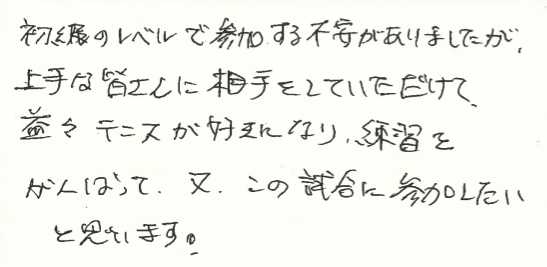 初級のレベルで参加する不安がありましたが、
上手な皆さんに相手をしていただけて、
益々テニスが好きになり、練習を
がんばって、又、この試合に参加したい
と思います。